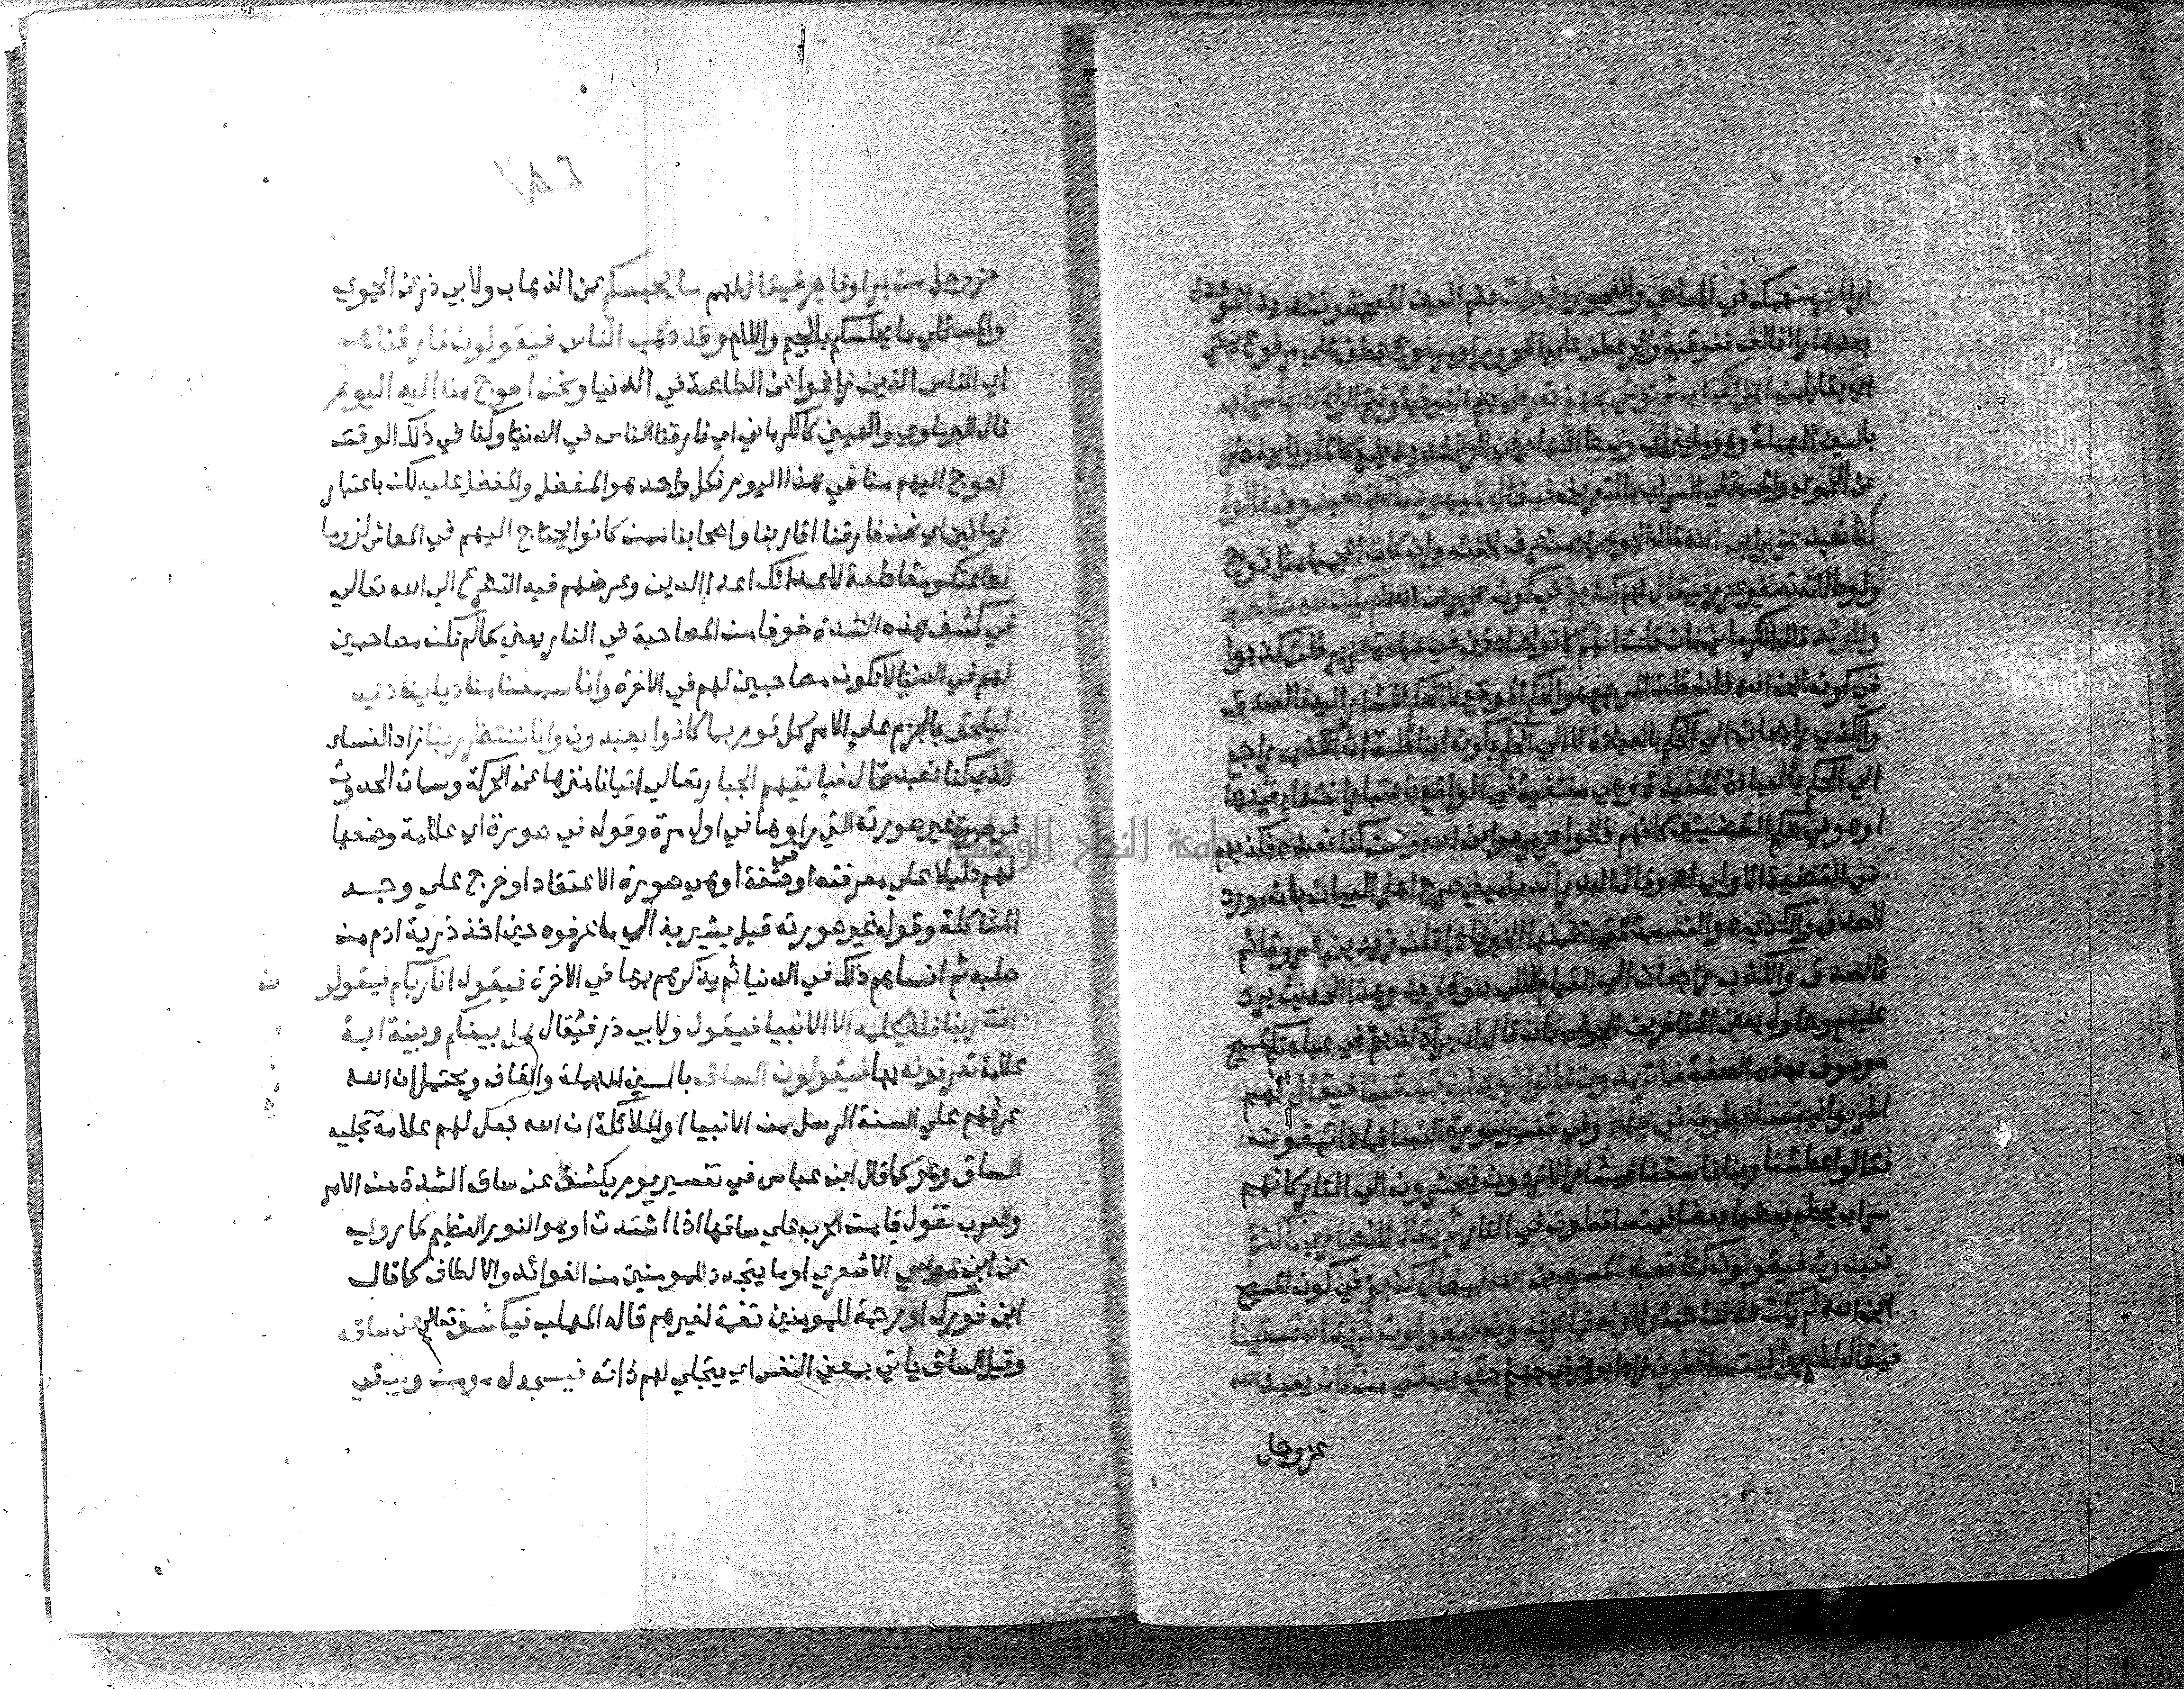 او فاجر منهمك في المعاصي والفجور وغبرات بضم الغين المعجمة وتشديد الموحدة
بعدها راء فالف ففوقية والجر عطف علي المجرور او مرفوع عطف علي مرفوع يبقي
اي بقايا من اهل الكتاب ثم توتي بجهنم تعرض بضم الفوقية وفتح الراء كانها سراب
بالسين المهملة وهو ما يتراي وسط النهار في الحر الشديد يلمع كالماء ولابي ذر
عن الحموي والمستملي السراب بالتعريف فيقال لليهود ما كنتم تعبدون قالوا
كنا نعبد عزير ابن الله قال الجوهري منصرف لخفته وان كان اعجميا مثل نوح
ولوط لانه تصغير عزر فيقال لهم كذبتم في كون عزير ابن الله لم يكن لله صاحبة
ولا ولد قال الكرماني فان قلت انهم كانوا صادقين في عبادة عزير قلت كذبوا
في كونه ابن الله فان قلت المرجع هو الحكم الموقع لا الحكم المشار اليه فالصدق
والكذب راجعان الي الحكم بالعبادة لا الي الحكم بكونه ابنا قلت ان الكذب راجع
الي الحكم بالعبادة المقيدة وهي منتفية في الواقع باعتبار انتفاء قيدها
او هو في حكم القضيتين كانهم قالوا عزير هو ابن الله ونحن كنا نعبده فكذبهم
في القضية الاولي اه وقال البدر الدماميني صرح اهل البيان بان مورد
الصدق والكذب هو النسبة التي تضمنها الخبر فاذا قلت زيد بن عمرو قائم
فالصدق والكذب راجعان الي القيام لا الي بنوة زيد وهذا الحديث يرد
عليهم وحاول بعض المتاخرين الجواب بان قال ان يراد كذبتم في عبادتكم لمسيح
موصوف بهذه الصفة فما تريدون قالوا نريد ان تسقينا فيقال لهم
اشربوا فيتساقطون في جهنم وفي تفسير سورة النسا فماذا تبغون
فقالوا عطشنا ربنا فاسقنا فيشار الا تردون فيحشرون الي النار كانهم
سراب يحطم بعضها بعضا فيتساقطون في النار ثم يقال للنصاري ما كنتم
تعبدون فيقولون كنا نعبد المسيح بن الله فيقال كذبتم في كون المسيح
ابن الله لم يكن لله صاحبة ولا ولد فما تريدون فيقولون نريد ان تسقينا
فيقال اشربوا فيتساقطون زاد ابو ذر في جهنم حتي يبقي من كان يعبد الله
عز وجل
عز وجل من بر او فاجر فيقال لهم ما يحبسكم عن الذهاب ولابي ذر عن الحموي
والمستملي ما يجلسكم بالجيم واللام وقد ذهب الناس فيقولون فارقناهم
اي الناس الذين زاغوا عن الطاعة في الدنيا ونحن احوج منا اليه اليوم
قال البرماوي والعيني كالكرماني اي فارقنا الناس في الدنيا وكنا في ذلك الوقت
احوج اليهم منا في هذا اليوم فكل واحد هو المفضل والمفضل عليه لكن باعتبار
زمانين اي نحن فارقنا اقاربنا واصحابنا ممن كانوا يحتاج اليهم في المعاش لزوما
لطاعتك ومقاطعة لاعدائك اعداء الدين وغرضهم فيه التضرع الي الله تعالي
في كشف هذه الشدة خوفا من المصاحبة في النار يعني كما لم نكن مصاحبين
لهم في الدنيا لا نكون مصاحبين لهم في الاخرة وانا سمعنا مناديا ينادي
ليلحق بالجزم علي الامر كل قوم بما كانوا يعبدون وانا ننتظر ربنا زاد النساء
الذي كنا نعبد قال فياتيهم الجبار تعالي اتيانا منزها عن الحركة وسمات الحدوث
في صورة غير صورته التي راوها في اول مرة وقوله في صورة اي علامة وضعها
لهم دليلا علي معرفته او صفة او هي صورة الاعتقاد او خرج علي وجه
المشاكلة وقوله غير صورته قيل يشير به الي ما عرفوه حين اخذ ذرية ادم من
صلبه ثم انساهم ذلك في الدنيا ثم يذكرهم بها في الاخرة فيقول انا ربكم فيقولون
انت ربنا فلا يكلمه الا الانبيا فيقول ولابي ذر فيقال هل بينكم وبينه اية
علامة تعرفونه بها فيقولون الساق بالسين المهملة والقاف ويحتمل ان الله
عرفهم علي السنة الرسل من الانبيا او الملائكة ان الله جعل لهم علامة تجليه
الساق وهو كما قال ابن عباس في تفسير يوم يكشف عن ساق الشدة من الامر
والعرب تقول قامت الحرب علي ساقها اذا اشتدت او هو النور العظيم كما روي
عن ابي موسي الاشعري او ما يتجدد للمومنين من الفوائد والالطاف كما قال
ابن فورك او رحمة للمومنين نقمة لغيرهم قاله المهلب فيكشف تعالي عن ساقه
وقيل الساق ياتي بمعني النفس اي يتجلي لهم ذاته فيسجد له مومن ويبقي